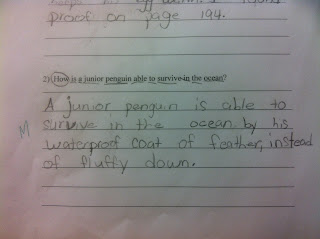 proof on page 194.
2) How is a junior penguin able to survive in the ocean?
A junior penguin is able to
M survive in the ocean by his
waterproof coat of feather, instead
of fluffy down.